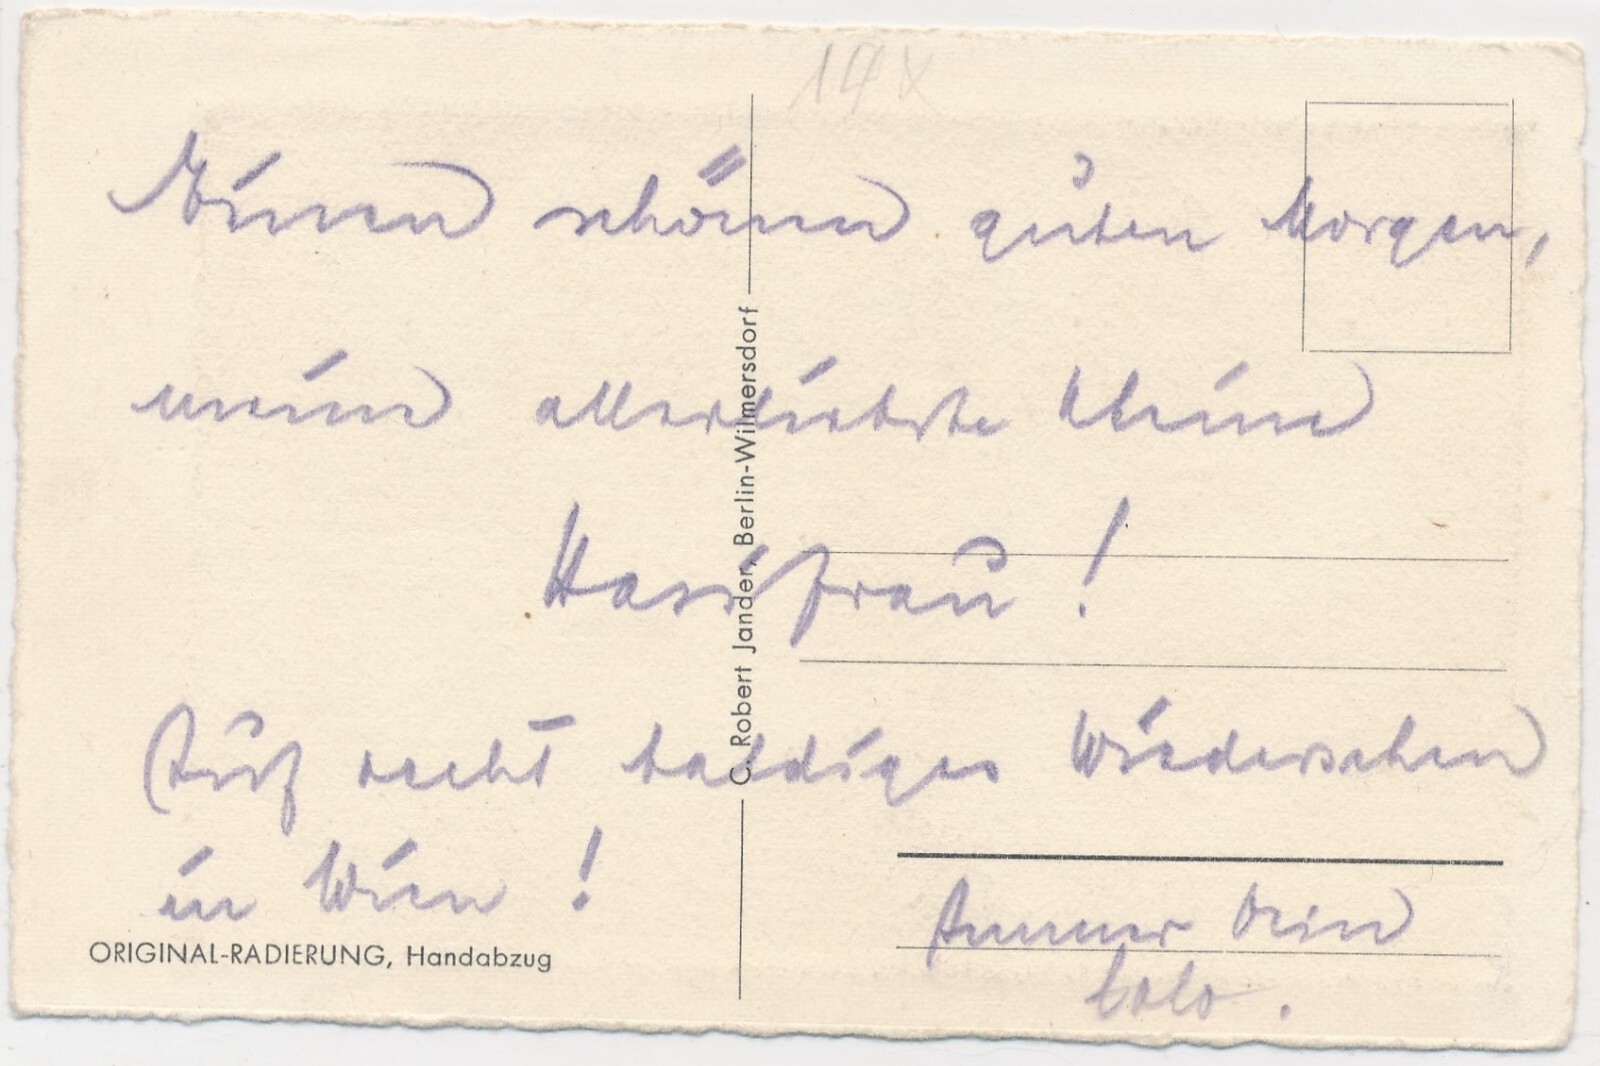 Einen schönen guten Morgen,
meine allerliebste kleine
Hasifrau!
Auf recht baldiges Wiedersehen
in Wien!
Immer Dein
Lolo.
ORIGINAL-RADIERUNG, Handabzug
C. Robert Jander, Berlin-Wilmersdorf